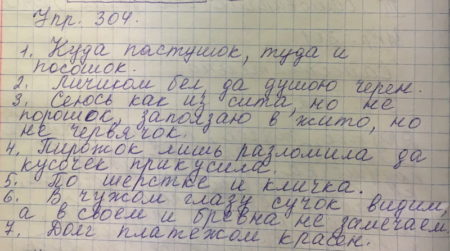 Упр. 304.
1. Куда пастушок, туда и
посошок.
2. Личиком бел, да душою черен.
3. Сеюсь как из сита, но не
порошок, заползаю в жито, но
не червячок.
4. Пирожок лишь разломила да
кусочек прикусила.
5. По шерстке и кличка.
6. В чужом глазу сучок видим,
а в своем и бревна не замечаем.
7. Долг платежом красен.